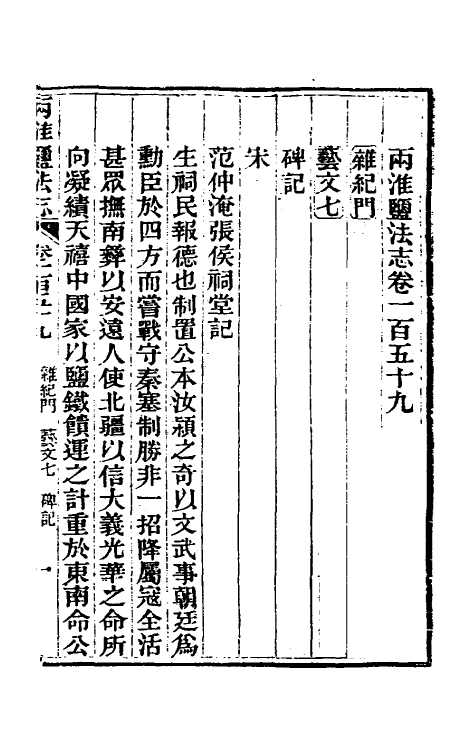 兩淮鹽法志卷一百五十九
雜紀門
藝文七
碑記
宋
范仲淹張侯祠堂記
生祠民報德也制置公本汝潁之奇以文武事朝廷爲
勳臣於四方而嘗戰守秦塞制勝非一招降屬寇全活
甚眾撫南彝以安遠人使北疆以信大義光華之命所
向凝績天禧中國家以鹽鐵饋運之計重於東南命公
兩淮鹽法志 卷一百五十九 雜紀門 藝文七 碑記 一